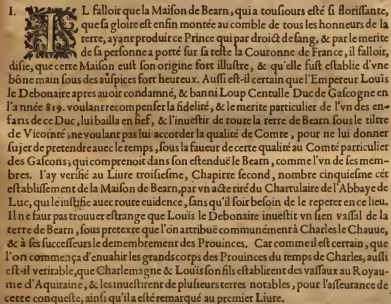 I. IL falloir que la Maison de Bearn, qui a tousiours esté si florissante,
que sa gloire est enfin montée au comble de tous les honneurs de la
terre, ayant produit ce Prince qui par droict de sang, & par le merite
de sa personne a porté sur sa teste la Couronne de France, il falloir,
disie, que cette Maison eust son origine fort illustre, & qu'elle fust establie d'vne
bône main sous des auspices fort heureux. Aussi est-il certain que l'Empereur Louïs
le Debonaire apres auoir condamné, & banni Loup Centulle Duc de Gascogne en
l'année 819. voulant recompenser la fidelité, & le merite particulier de l'vn des en-
fans de ce Duc, lui bailla en fief, & l'inuestit de toute la terre de Bearn sous le tiltre
de Vicomté; ne voulant pas lui accorder la qualité de Comte, pour ne lui donner
sujet de pretendre auec le temps, sous la faueur de cette qualité au Comté particulier
des Gascons; qui comprenoit dans son estenduë le Bearn, comme l'vn de ses mem-
bres. I'ay verifié au Liure troisiesme, Chapitre second, nombre cinquiesme cét
establissement de la Maison de Bearn, par vn acte tiré du Chartulaire de l'Abbaye de
Luc, qui le iustifie auec toute euidence, sans qu'il soir besoin de le repeter en ce lieu.
Il ne faut pas trouuer estrange que Louïs le Debonaire inuestit vn sien vassal de la
terre de Bearn, sous pretexte que l'on attribuë communément à Charles le Chauue,
& à ses successeurs le demembrement des Prouinces. Car comme il est certain, que
l'on commença d'enuahir les grands corps des Prouinces du temps de Charles, aussi
est-il veritable, que Charlemagne & Louïs son fils establirent des vassaux au Royau-
me d'Aquitaine, & les inuestirent de plusieurs terres notables, pour l'asseurance de
cette conqueste, ainsi qu'il a esté remarqué au premier Liure.